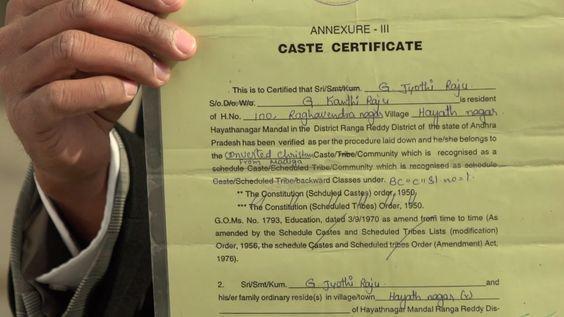 ANNEXURE - III
CASTE CERTIFICATE
This is to Certified that Sri/Smt/Kum. G Jyothi Raju
S/o.D/o.W/o. G Kanthi Raju is resident
of H.No. 100, Raghavendra nagar Village Hayath nagar
Hayathanagar Mandal in the District Ranga Reddy District of the state of Andhra
Pradesh has been verified as per the procedure laid down and he/she belongs to
the Converted Christian Caste/Tribe/Community which is recognised as a
from Madiga
schedule Caste/Scheduled Tribe/Community which is recognised as schedule
Caste/Scheduled Tribe/backward Classes under. BC=C=Sl no=1.
** The Constitution (Schduled Castes) order, 1950.
*** The Constitution (Scheduled Tribes) Order, 1950.
G.O.Ms. No. 1793, Education, dated 3/9/1970 as amend from time to time (As
amended by the Schedule Castes and Scheduled Tribes Lists (modification)
Order, 1956, the schedule Castes and Scheduled tribes Order (Amendment) Act,
1976).
2. Sri/Smt/Kum. G Jyothi Raju and
his/er family ordinary reside(s) in village/town Hayath nagar (v)
of Hayathnagar Mandal Ranga Reddy Dis-